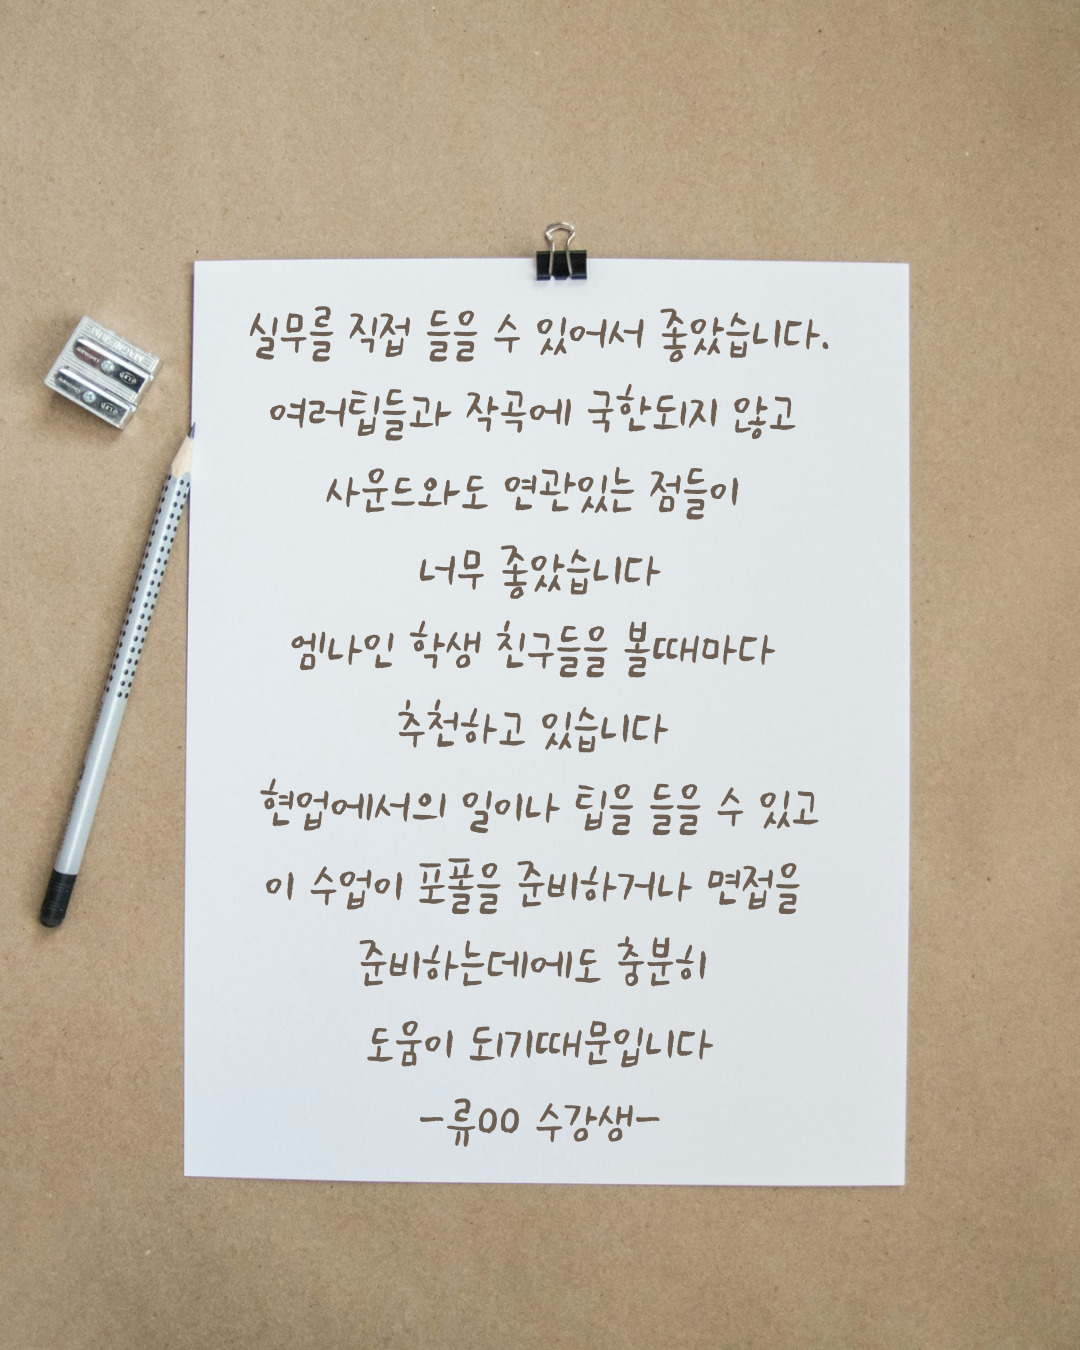 실무를 직접 들을 수 있어서 좋았습니다.
여러팁들과 작곡에 국한되지 않고
사운드와도 연관있는 점들이
너무 좋았습니다
엠나인 학생 친구들을 볼때마다
추천하고 있습니다
현업에서의 일이나 팁을 들을 수 있고
이 수업이 포폴을 준비하거나 면접을
준비하는데에도 충분히
도움이 되기때문입니다
-류00 수강생-